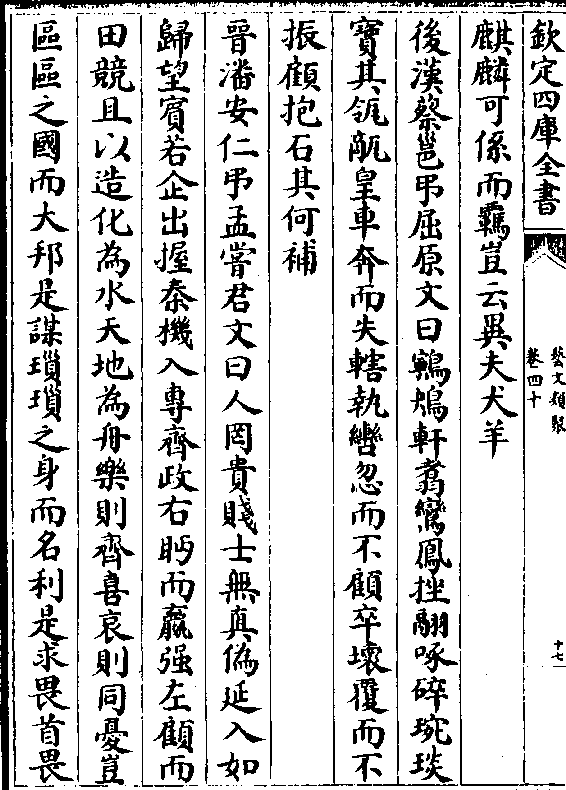 欽定四庫全書
藝文類聚
卷四十
十七
麒麟可係而羈豈云異夫犬羊
後漢蔡邕弔屈原文曰鸋鴂軒翥鸞鳳挫翮啄碎琬琰
寶其瓴甋皇車奔而失轄執轡忽而不顧卒壞覆而不
振顧抱石其何補
晉潘安仁弔孟嘗君文曰人罔貴賤士無真偽延入如
歸望賓若企出握秦機入專齊政右眄而嬴强左顧而
田競且以造化為水天地為舟樂則齊喜哀則同憂豈
區區之國而大邦是謀瑣瑣之身而名利是求畏首畏